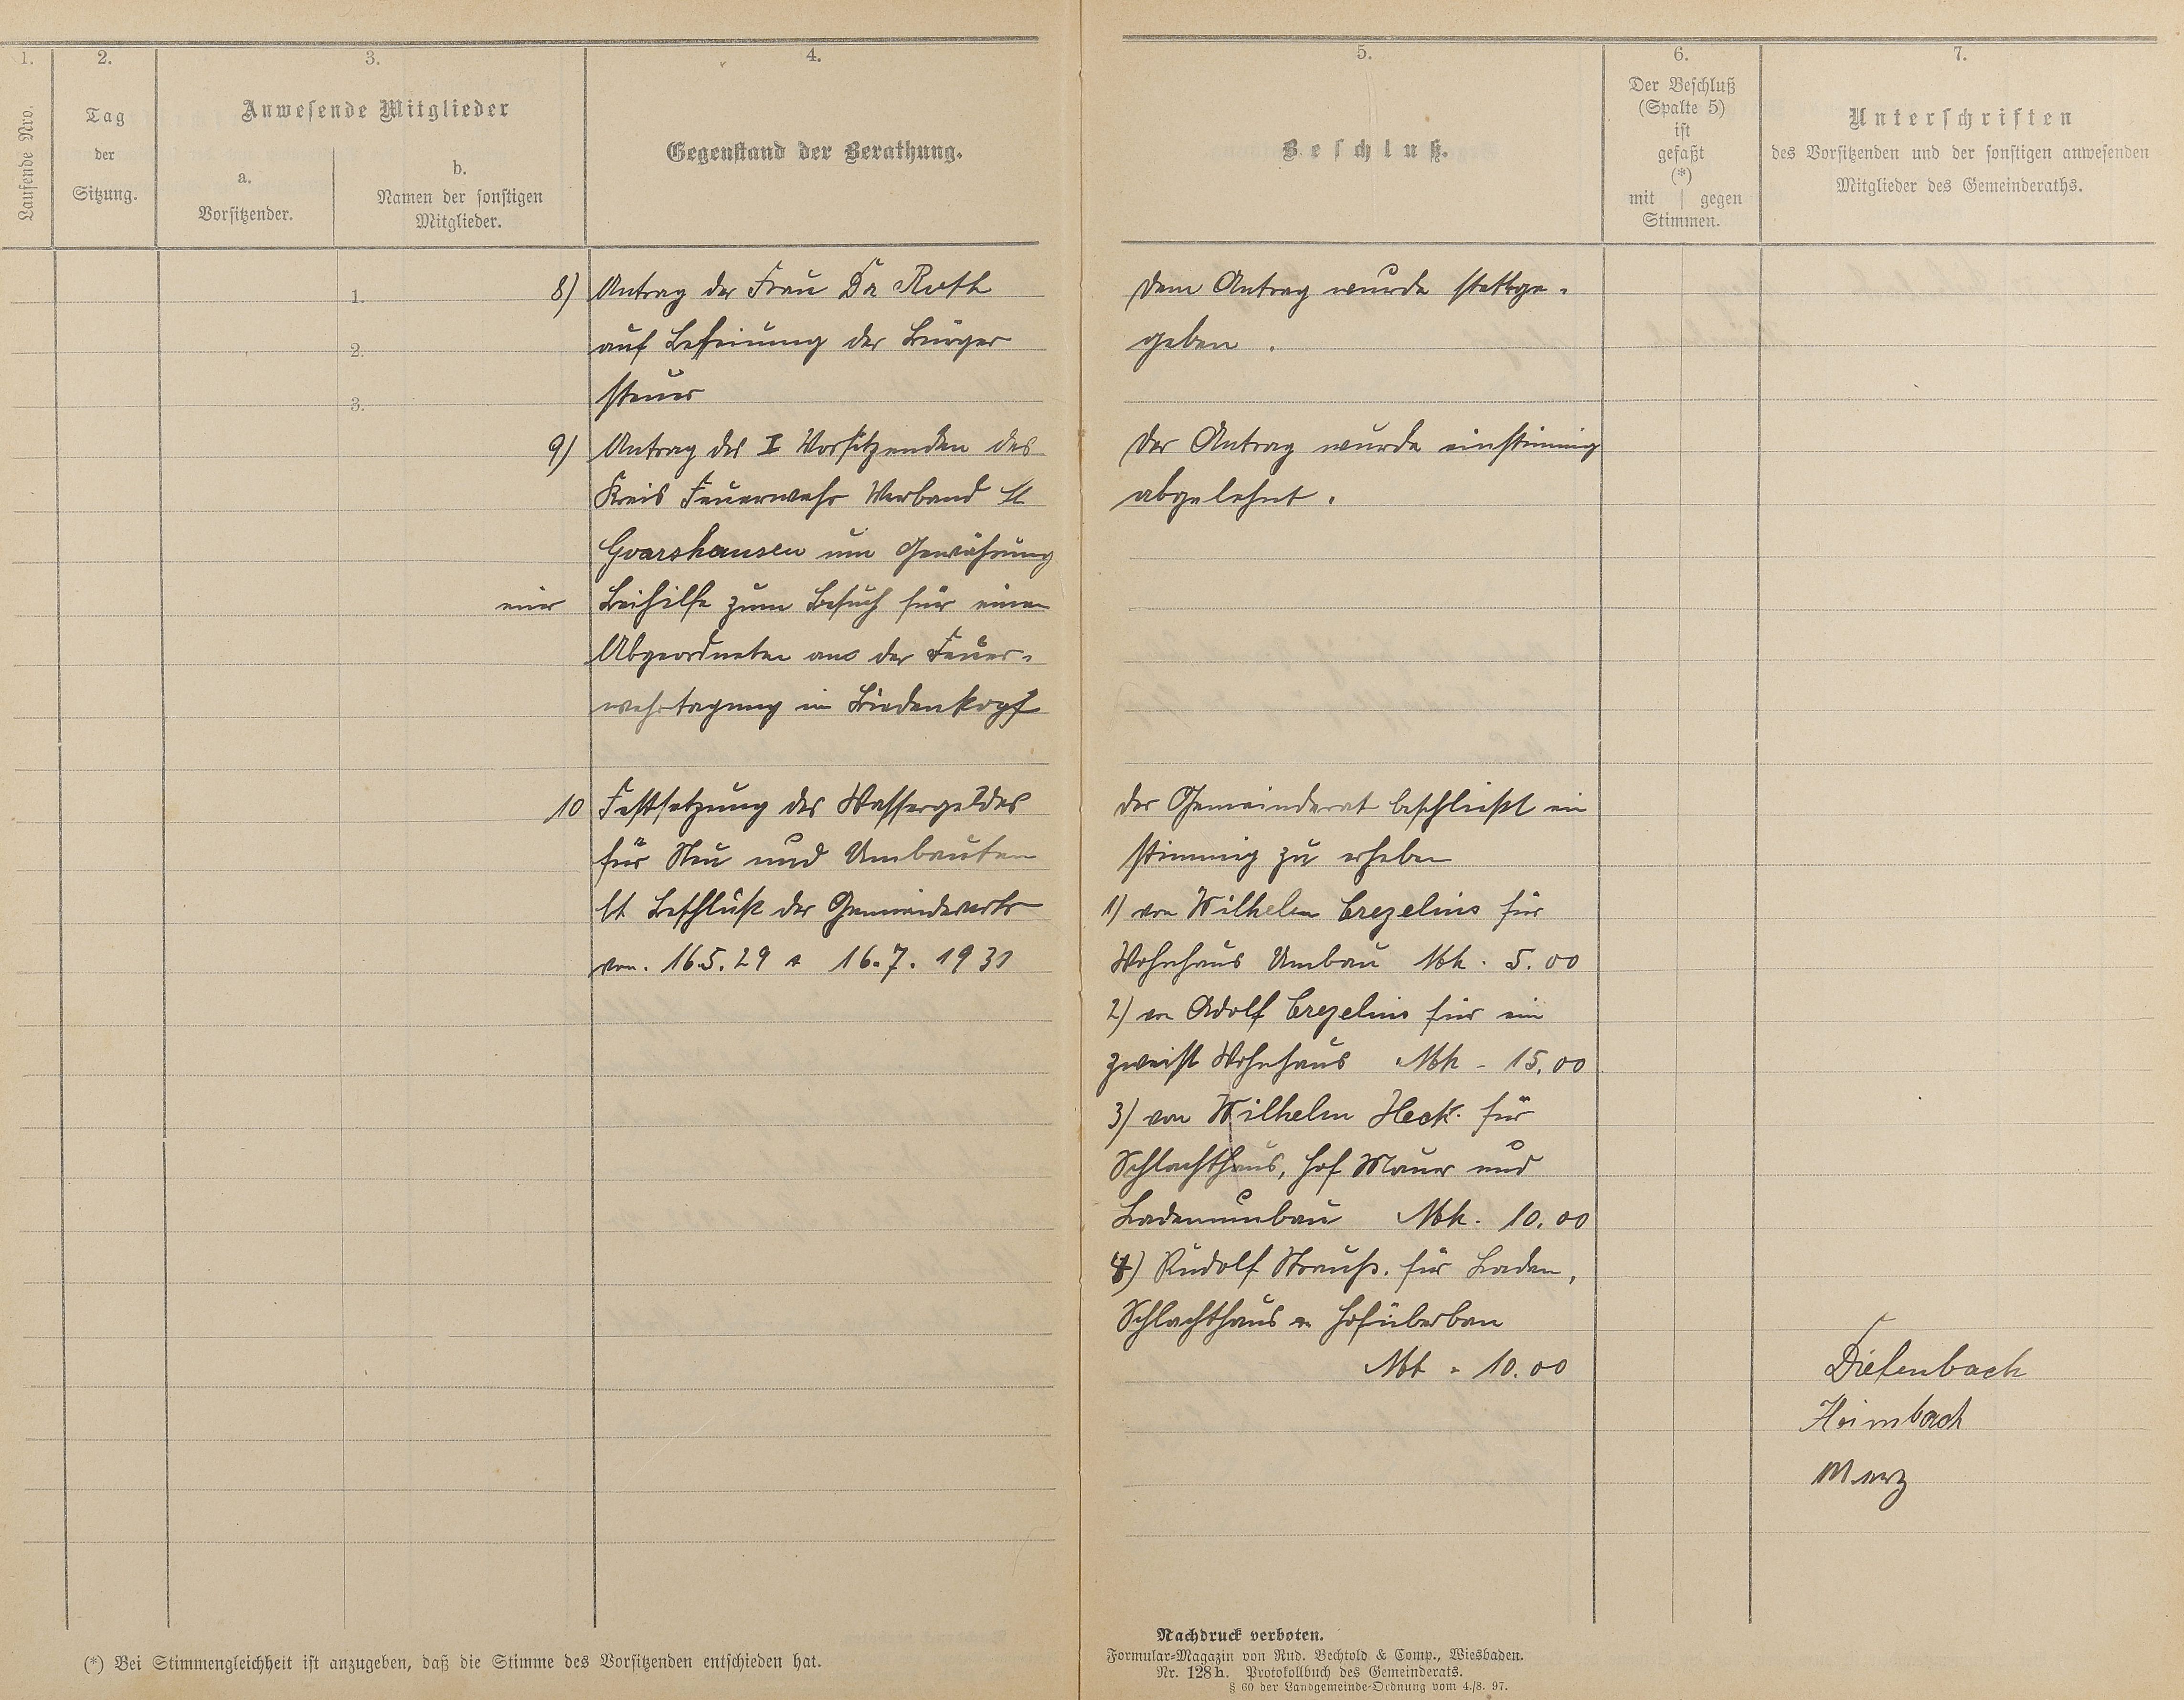 1.
2.
3.
4.
Laufende Nro.
Tag
der
Sitzung.
Anwesende Mitglieder
a.
Vorsitzender.
b.
Namen der sonstigen
Mitglieder.
Gegenstand der Berathung.
1.
2.
3.
8) Antrag der Frau Dr Roth
auf Befreiung der Bürger
steuer
9) Antrag des I Vorsitzenden des
Kreis Feuerwehr Verband St
Goarshausen um Gewährung
einer Beihilfe zum Besuch für einen
Abgeordneten aus der Feuer-
wehrtagung in Biedenkopf
10 Festsetzung des Wassergeldes
für Neu und Umbauten
lt Beschluß der Gemeinderats
von. 16.5.29 u 16.7.1931
(*) Bei Stimmengleichheit ist anzugeben, daß die Stimme des Vorsitzenden entschieden hat.
5.
6.
7.
Beschluß.
Der Beschluß
(Spalte 5)
ist
gefaßt
(*)
mit | gegen
Stimmen.
Unterschriften
des Vorsitzenden und der sonstigen anwesenden
Mitglieder des Gemeinderaths.
Dem Antrag wurde stattge-
geben.
Der Antrag wurde einstimmig
abgelehnt.
Der Gemeinderat beschließt ein
stimmig zu erheben
1) von Wilhelm Crezelius für
Wohnhaus Umbau Mk. 5.00
2) von Adolf Crezelius für ein
zweist Wohnhaus Mk - 15.00
3) von Wilhelm Heck. für
Schlachthaus, Hof Mauer und
Ladenumbau Mk. 10.00
4) Rudolf Strauß. für Laden,
Schlachthaus u Hofüberbau
Mk - 10.00
Diefenbach
Heimbach
Merz
Nachdruck verboten.
Formular-Magazin von Rud. Bechtold & Comp., Wiesbaden.
Nr. 128h. Protokollbuch des Gemeinderats.
§ 60 der Landgemeinde-Ordnung vom 4./8. 97.